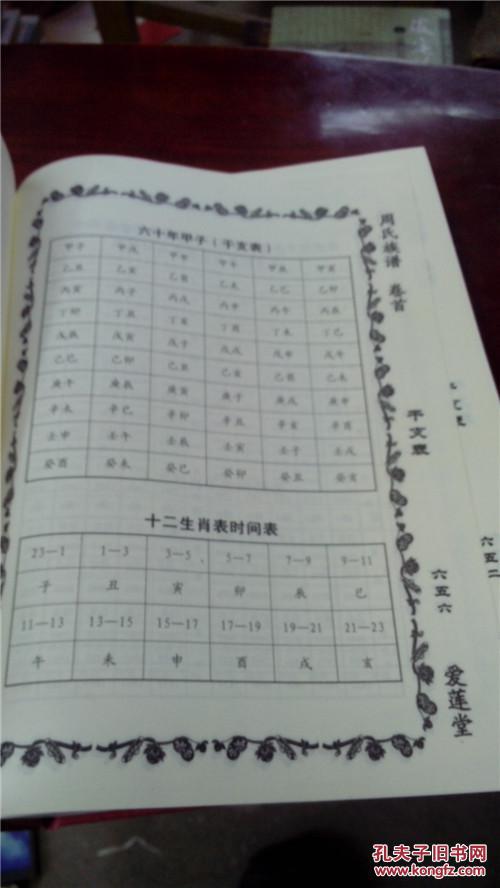 六十年甲子（干支表）
甲子 甲戌 甲申 甲午 甲辰 甲寅
乙丑 乙亥 乙酉 乙未 乙巳 乙卯
丙寅 丙子 丙戌 丙申 丙午 丙辰
丁卯 丁丑 丁亥 丁酉 丁未 丁巳
戊辰 戊寅 戊子 戊戌 戊申 戊午
己巳 己卯 己丑 己亥 己酉 己未
庚午 庚辰 庚寅 庚子 庚戌 庚申
辛未 辛巳 辛卯 辛丑 辛亥 辛酉
壬申 壬午 壬辰 壬寅 壬子 壬戌
癸酉 癸未 癸巳 癸卯 癸丑 癸亥
十二生肖表时间表
23—1 1—3 3—5 5—7 7—9 9—11
子 丑 寅 卯 辰 巳
11—13 13—15 15—17 17—19 19—21 21—23
午 未 申 酉 戌 亥
周氏族谱 卷首
干支表
六五六
爱莲堂
六五二
孔夫子旧书网
www.kongfz.com